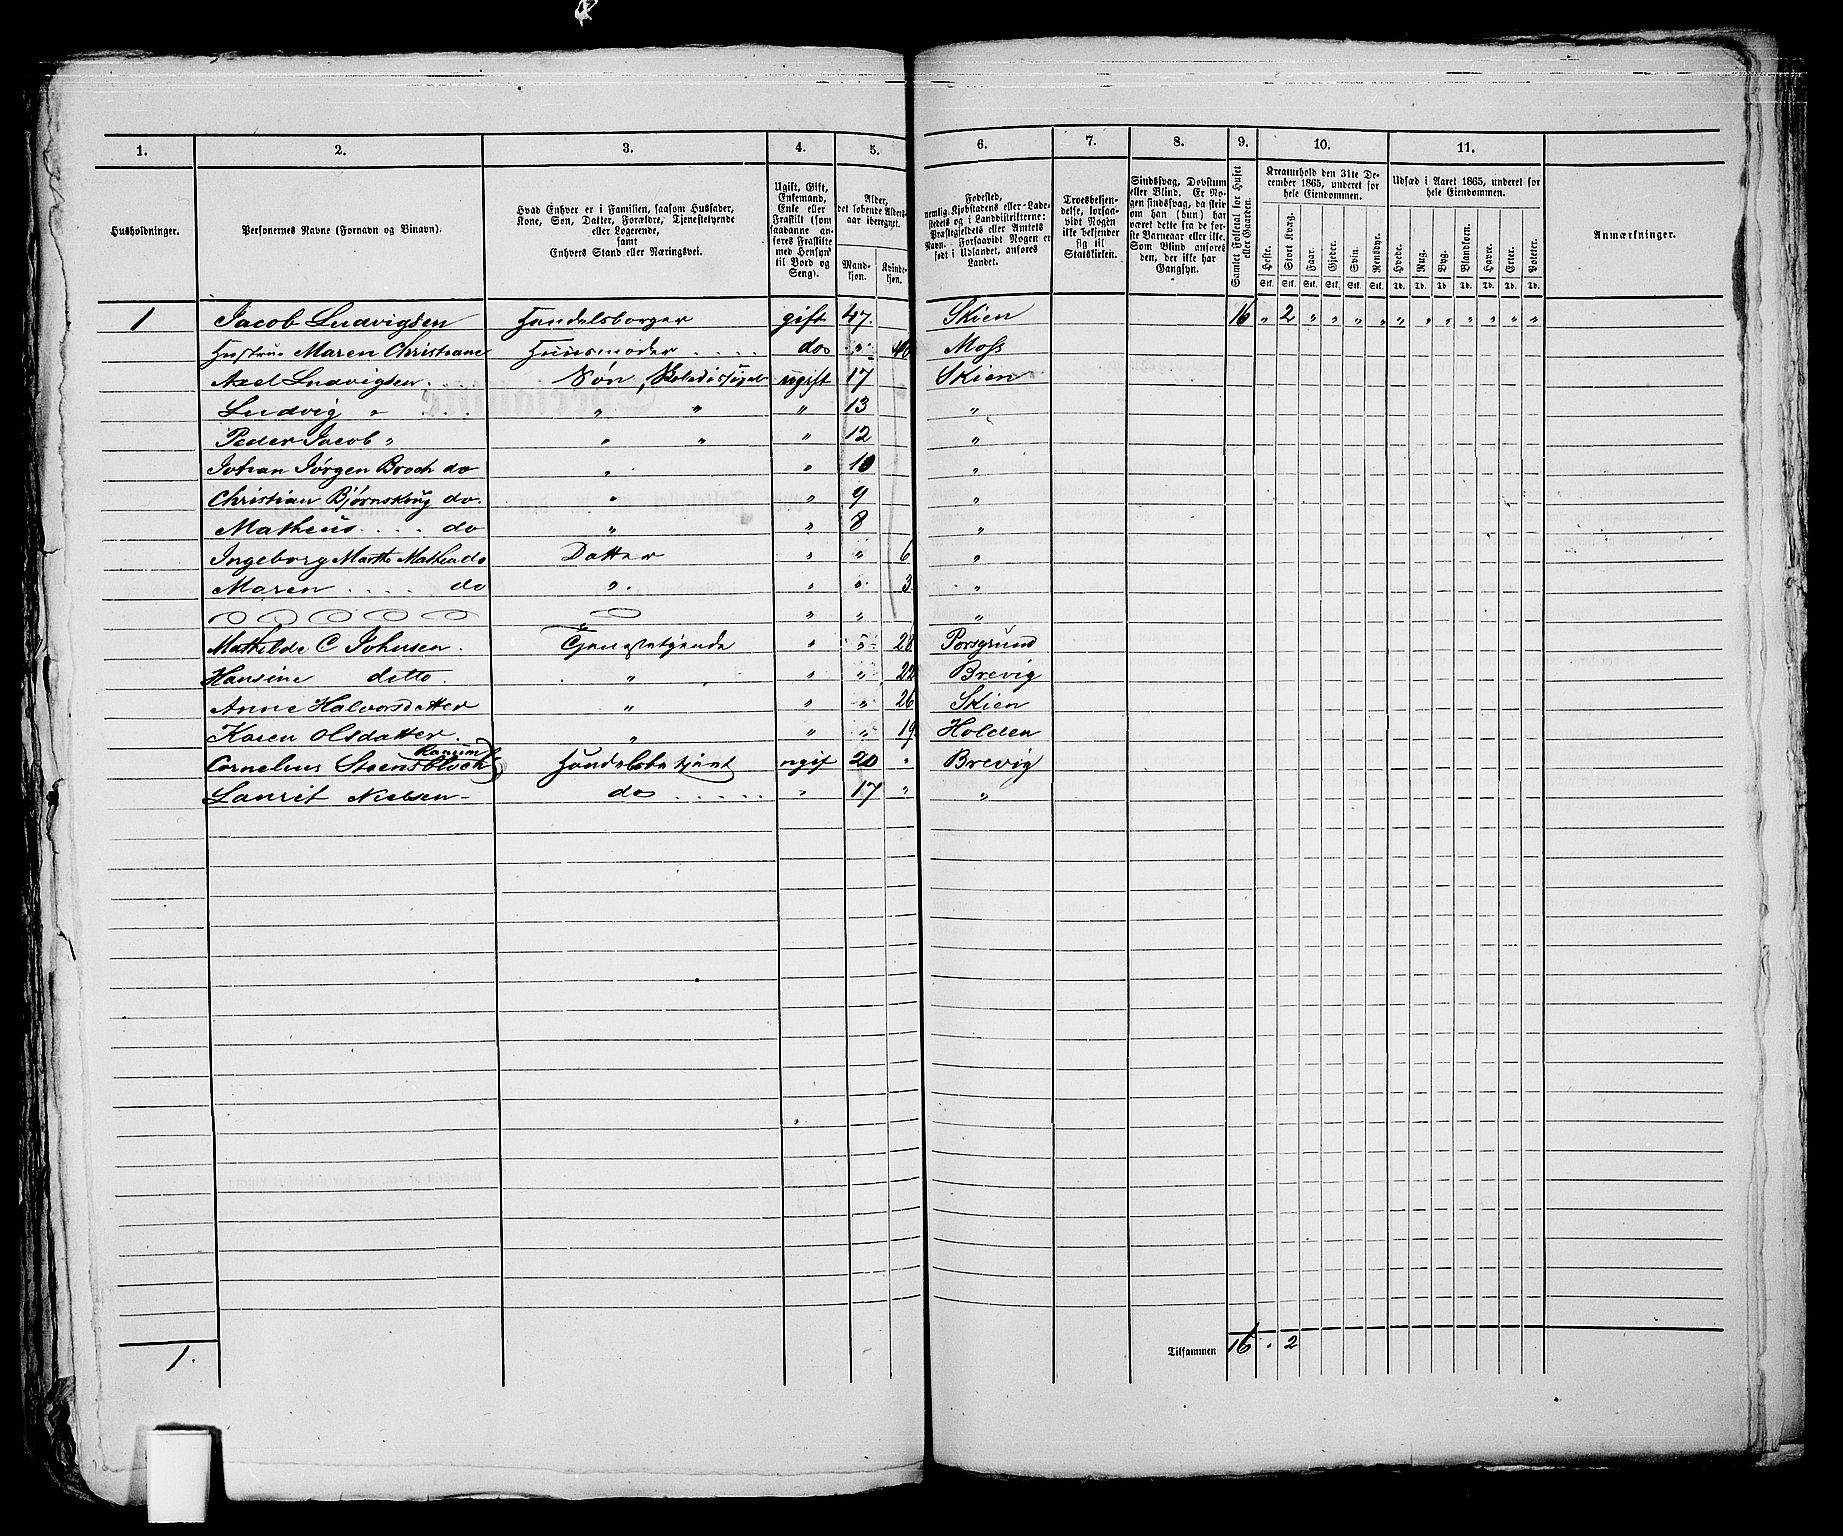 1. 2. 3. 4. 5. 6. 7. 8. 9. 10. 11.
Husholdninger.
Personernes Navne (Fornavn og Binavn).
Hvad Enhver er i Familien, saasom Husfader,
Kone, Søn, Datter, Forældre, Tjenestetyende
eller Logerende,
samt
Enhvers Stand eller Næringsvei.
Ugift, Gift,
Enkemand,
Enke eller
Fraskilt (som
saadanne an-
føres Fraskilte
med Hensyn
til Bord og
Seng).
Alder,
det løbende Alders-
aar iberegnet.
Mand-
kjøn.
Kvinde-
kjøn.
Fødested,
nemlig Kjøbstadens eller Lade-
stedets og i Landdistrikterne:
Præstegjeldets eller Amtets
Navn. - Forsaavidt Nogen er
født i Udlandet, anføres
Landet.
Troesbekjen-
delse, forsaa-
vidt Nogen
ikke bekjender
sig til
Statskirken.
Sindssvag, Døvstum
eller Blind. Er No-
gen sindssvag, da skriv
om han (hun) har
været dette fra de før-
ste Barneaar eller ikke.
Som Blind anføres
den, der ikke har
Gangsyn.
Samlet Folketal for Huset
eller Gaarden.
Kreaturhold den 31te De-
cember 1865, underet for
hele Eiendommen.
Heste. Stort Kvæg. Faar. Gjeder. Svin. Rensdyr.
Stk. Stk. Stk. Stk. Stk. Stk.
Udsæd i Aaret 1865, underet for
hele Eiendommen.
Hvede. Rug. Byg. Blandkorn. Havre. Erter. Poteter.
Td. Td. Td. Td. Td. Td. Td.
Anmærkninger.
1 Jacob Ludvigsen Handelsborger gift 47. Skien 16 " 2 " " " " " " " " " " "
Hustrue Maren Christiane Huusmoder .... do " 40 Moss
Axel Ludvigsen. Søn, ugift 17 Skien
Ludvig " ... " " " 13 "
Peder Jacob " " " " 12 "
Johan Jørgen Broch do " " 10 "
Christian do. " " 9 "
Matheus .... do " " 8 "
Ingeborg Marthe do Datter " " 6 "
Maren ..... do " " " 3 "
" " "
Mathilde C Johnsen. Tjenestetyende " " 28 Porsgrund
Hansine ditto. " " " 22 Brevig
Anne Halvorsdatter " " " 26 Skien
Karen Olsdatter. " " " 19 Holden
Hanum
Cornelius Steensbloch Handelsbetjent ugif 20 " Brevig
Laurit Nielsen - do ..... " 17 " "
1. Tilsammen 16 " 2